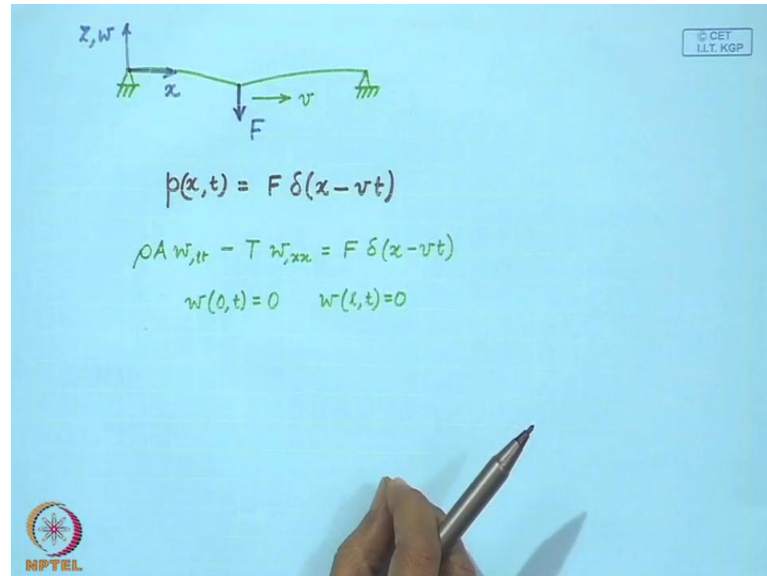 z, w
© CET
I.I.T. KGP
x
v
F
p(x,t) = F δ(x-vt)
ρA w,tt - T w,xx = F δ(x-vt)
w(0,t) = 0 w(l,t)=0
NPTEL